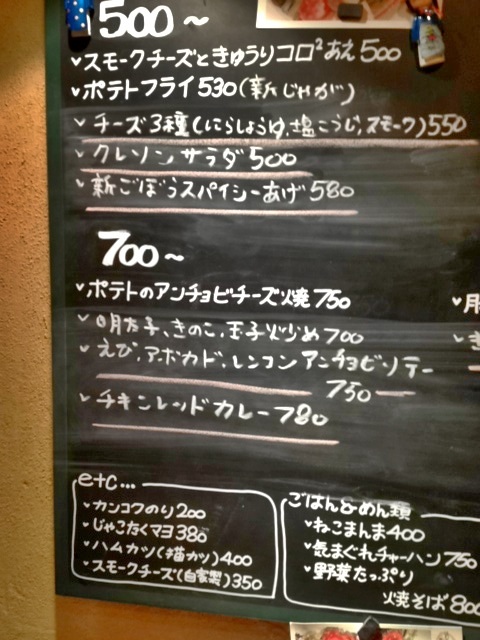 500～
スモークチーズときゅうりコロ²あえ 500
ポテトフライ 530 (新じゃが)
チーズ3種 (にらしょうゆ、塩こうじ、スモーク) 550
クレソンサラダ 500
新ごぼうスパイシーあげ 580
700～
ポテトのアンチョビチーズ焼 750
明太子、きのこ、玉子炒め 700
えび、アボカド、レンコンアンチョビソテー
750
チキンレッドカレー 780
etc...
カンコクのり 200
じゃこたくマヨ 380
ハムカツ 400
スモークチーズ (自家製) 350
ごはん&めん類
ねこまんま 400
気まぐれチャーハン 750
野菜たっぷり
焼そば 800